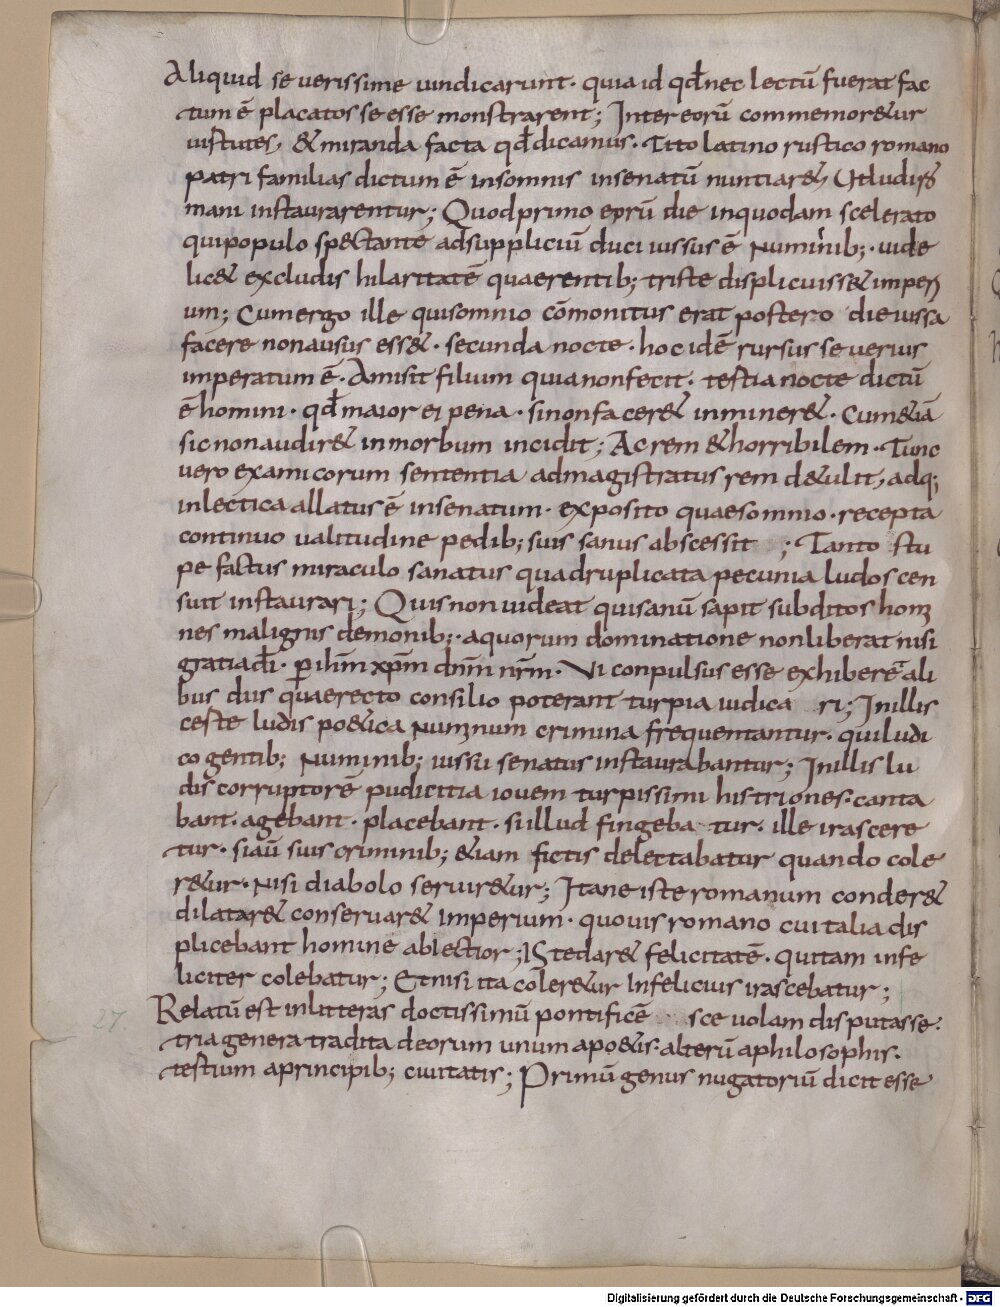 Aliquid severissime vindicarunt· quia id qđ nec lectū fuerat fac
tum ē placatos se esse monstrarent; Inter eorū commemor&ur
uistutes, & miranda facta qđ dicamus· Tito latino rustico romano
patri familias dictum ē insomnis insenatū nuntiar&, Ut ludi rō
mani instaurarentur; Quod primo eorū die inquodam scelerato
qui populo spectante ad suppliciū duci iussus ē numinib;· uide
lic& ex cludis hilaritatē quaerentib; triste displicuiss& imperi
um; Cum ergo ille qui somnio cōmonitus erat postero die iussa
facere non ausus ess&· secunda nocte· hoc idē rursus severius
imperatum ē· Amisit filium quia non fecit· testia nocte dictū
ē homini· qđ maior ei pena· si non facer& inminer&· Cum &iā
sic non audir& in morbum incidit; Acrem & horribilem· Tunc
vero ex amicorum sententia ad magistratus rem d&ulit, adq;
in lectica allatus ē in senatum· exposito quae somnio· recepta
continuo ualitudine pedib; suis sanus abscessit ; Tanto stu
pe factus miraculo sanatus quadruplicata pecunia ludos cen
suit instaurari; Quis non uideat qui sanū sapit subditos homi
nes malignis demonib;· a quorum dominatione non liberat nisi
gratia dī· p ihm xpm dnm nrm· Vi conpulsus esse exhibere ali
bus diis quae recto consilio poterant turpia iudica ri; In illis
ceste ludis po&ica numinum crimina frequentantur· qui ludi
co gentib; numinib; iussu senatus instaurabantur; In illis lu
dis corruptorē pudicitia iovem turpissimi histriones· canta
bant· agebant· placebant· si illud fingeba tur· ille irascere
tur· si aū suis criminib; &iam fictis delectabatur quando cole
r&ur· nisi diabolo seruir&ur; Itane iste romanum conder&
dilatar& conservar& imperium· quouis romano cui talia dis
plicebant homine ablectior; Iste dar& felicitatē· qui tam infe
liciter colebatur; Et nisi ita coler&ur Infelicius irascebatur;
Relatū est in litteras doctissimū pontificē sce uolam disputasse·
tria genera tradita deorum unum a po&is· alterū a philosophis·
testium a principib; ciuitatis; Primū genus nugatoriū dicit esse
27.
Digitalisierung gefördert durch die Deutsche Forschungsgemeinschaft - DFG